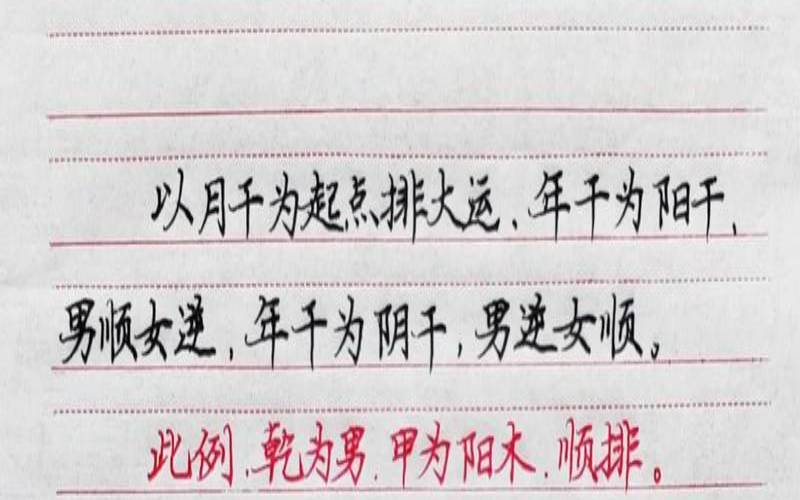 以月干为起点排大运、年干为阳干、
男顺女逆,年干为阴干,男逆女顺。
此例、乾为男、甲为阳木、顺排。